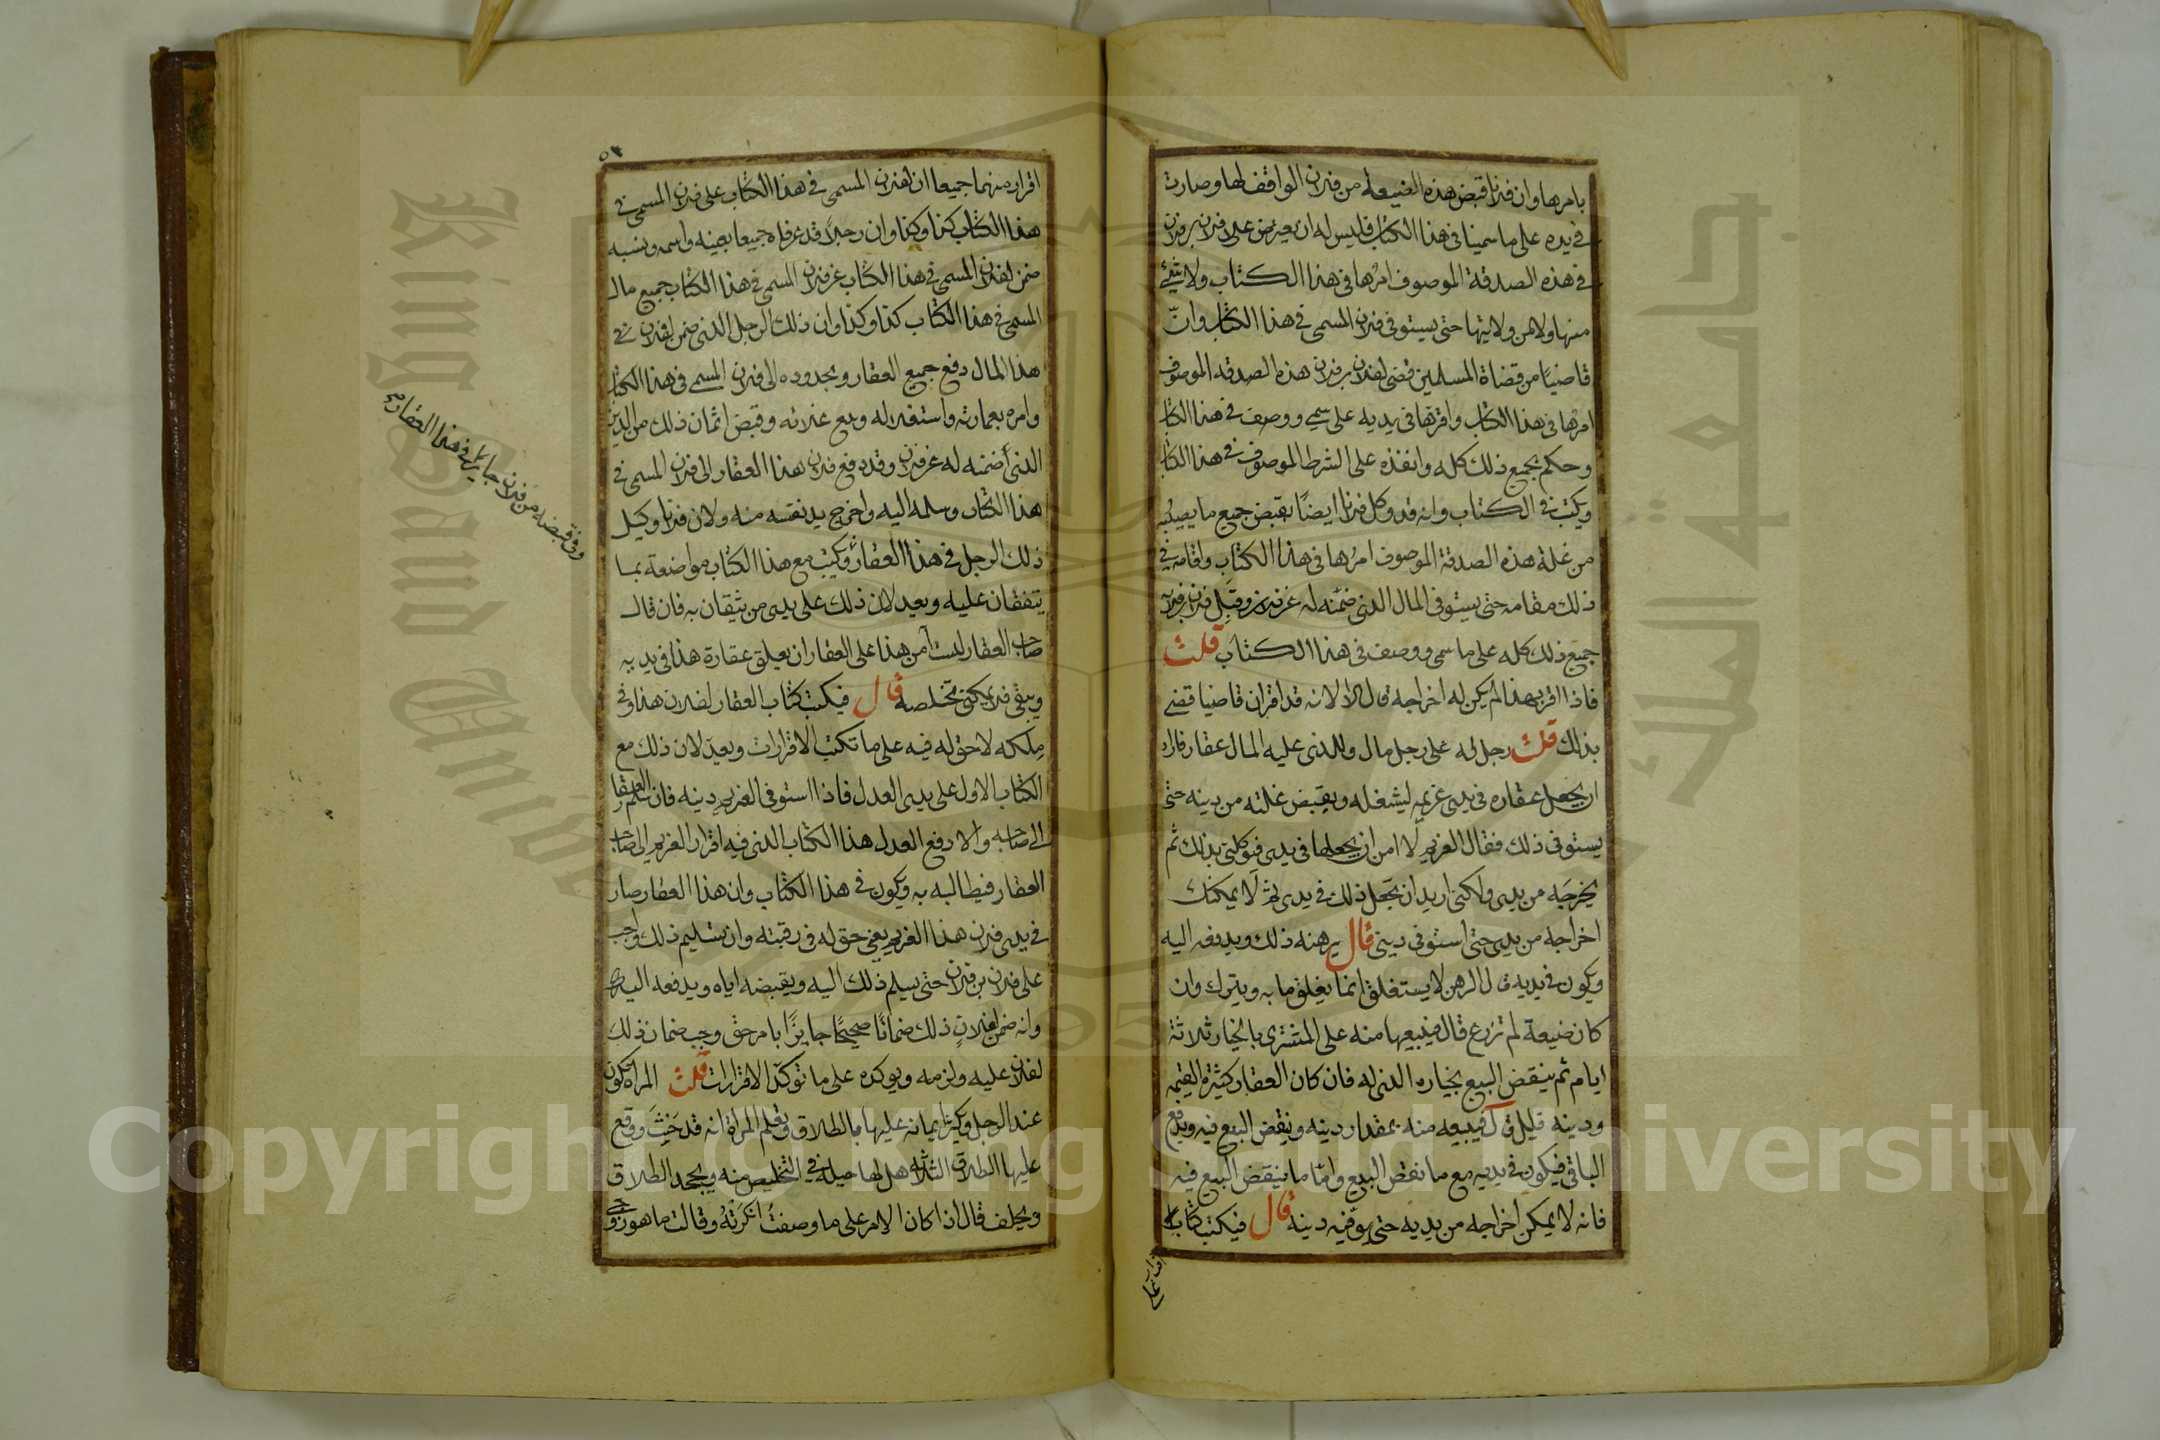 بامرها وان فلانا قبض هذه الضيعة من فلان الواقف لها وصارت
في يده على ما سمينا في هذا الكتاب فليس له ان يعترض على فلان بن فلان
في هذه الصدقة الموصوف امرها في هذا الكتاب ولا شئ
منها ولا من ولايتها حتى يستوفى فلان المسمى في هذا الكتاب وانّ
قاضيًا من قضاة المسلمين قضى لفلان بن فلان هذه الصدقة الموصوف
امرها في هذا الكتاب واقرها في يديه على سمى ووصف في هذا الكتاب
وحكم بجميع ذلك كله وانفذه على الشرط الموصوف في هذا الكتاب
ويكتب في الكتاب وانه قد وكل فلانا ايضًا بقبض جميع ما يصيبه
من غلة هذه الصدقة الموصوف امرها في هذا الكتاب واقامه في
ذلك مقامه حتى يستوفى المال الذى ضمنه له عن فلان وقبل فلان بن فلان
جميع ذلك كله على ما سمى ووصف في هذا الكتاب قلت
فاذا اقر بهذا لم يكن له اخراجه قال لا لانه قد اقر ان قاضيا قضى
بذلك قلت رجل له على رجل مال وللذى عليه المال عقار فاراد
ان يجعل عقاره في يدى غريمه ليشغله ويقبض غلته من دينه حتى
يستوفى ذلك فقال الغريم لا امن ان يجعلها في يدى فتوكلنى بذلك ثم
يخرجه من يدى ولكنى اريد ان تجعل ذلك في يدى ثم لا يمكنك
اخراجه من يدى حتى استوفى دينى قال يرهنه ذلك ويدفعه اليه
ويكون في يديه قال الرهن لا يستغلق انما يغلق ما به ويترك وان
كان ضيعة لم تزرع قال فيبيعها منه على المشترى بالخيار ثلاثة
ايام ثم ينقض البيع بخياره الذى له فان كان العقار كثيرة القيمه
ودينه قليل قال فيبيعه منه بمقدار دينه وينقض البيع فيه ويدفع
الباقى فيكون في يديه مع ما نقض البيع واما ما ينقض البيع فيه
فانه لا يمكن اخراجه من يديه حتى يوفيه دينه قال فيكتب كتاب
اقرار منهما جميعا ان لفلان المسمى في هذا الكتاب على فلان المسمى في
هذا الكتاب كذا وكذا وان رجلا قد عرفاه جميعا بعينه واسمه ونسبه
ضمن لفلان المسمى في هذا الكتاب عن فلان المسمى في هذا الكتاب جميع مال
المسمى في هذا الكتاب كذا وكذا وان ذلك الرجل الذى ضمن لفلان في
هذا المال دفع جميع العقار وبحدوده الى فلان المسمى في هذا الكتاب
وامره بعمارته واستغلاله وبيع غلاته وقبض اثمان ذلك من الدين
الذى أضمنه له عن فلان وقد دفع فلان هذا العقار الى فلان المسمى في
هذا الكتاب وسلمه اليه واخرج يد نفسه منه ولان فلانا وكيل
ذلك الرجل في هذا العقار ويكتب مع هذا الكتاب مواضعة بما
يتفقان عليه ويعدلان ذلك على يدى من يثقان به فان قال
صاحب العقار لست آمن هذا على العقار ان يعلق عقارة هذا في يديه
ويبقى فلا يمكنى تخلصه قال فيكتب كتاب العقار لفلان هذا وفى
ملكه لا حق له فيه على ما تكتب الاقرارات ويعدلان ذلك مع
الكتاب الاول على يدى العدل فاذا استوفى الغريم دينه فان سلم العقار
الى صاحبه والا دفع العدل هذا الكتاب الذى فيه اقرار الغريم الى صاحب
العقار فيطالبه به ويكون في هذا الكتاب وان هذا العقار صار
في يدى فلان هذا الغريم بغير حق له في رقبته وان تسليم ذلك واجب
على فلان بن فلان حتى يسلم ذلك اليه ويقبضه اياه ويدفعه اليه
وانه ضمن لفلانٍ ذلك ضمانًا صحيحًا جايزًا بامر حق وجب ضمان ذلك
لفلان عليه ولزمه ويوكده على ما توكد الاقرارات قلت المراة تكون
عند الرجل ويكثر ايمانه عليها بالطلاق وتعلم المراة انه قد حَنِثَ ووقع
عليها الطلاق الثلاثه هل لها حيلة في التخليص منه ويجحد الطلاق
ويحلف قال اذا كان الامر على ما وصفت انكرته وقالت ما هو زوجى
Copyright © King Saud University
جامعة الملك
King Saud University